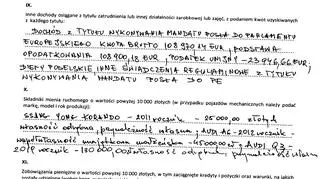 IX.
Inne dochody osiągane z tytułu zatrudnienia lub innej działalności zarobkowej lub zajęć, z podaniem kwot uzyskiwanych
z każdego
DOCHÓD Z TYTUŁU WYKONYWANIA MANDATU POSŁA DO PARLAMENTU
EUROPEJSKIEGO KWOTA BRUTTO 108 970,14 EUR, PODSTAWA
OPODATKOWANIA 108 900,18 EUR, PODATEK UNIJNY - 23 946,66 EUR;
DIETY POSELSKIE INNE ŚWIADCZENIA REGULAMINOWE Z TYTUŁU
WYKONYWANIA MANDATU POSŁA DO PE
X.
Składniki mienia ruchomego o wartości powyżej 10 000 złotych (w przypadku pojazdów mechanicznych należy podać
markę, model i rok produkcji):
SSANG YONG KORANDO - 2011 rocznik - 25 000,00 złotych
własność odrębna AUDI A6 - 2012 rocznik -
współwłasność małżeńska AUDI Q3 -
rocznik - własność odrębna
XI.
Zobowiązania pieniężne o wartości powyżej 10 000 złotych, w tym zaciągnięte kredyty i pożyczki oraz warunki, na jakich